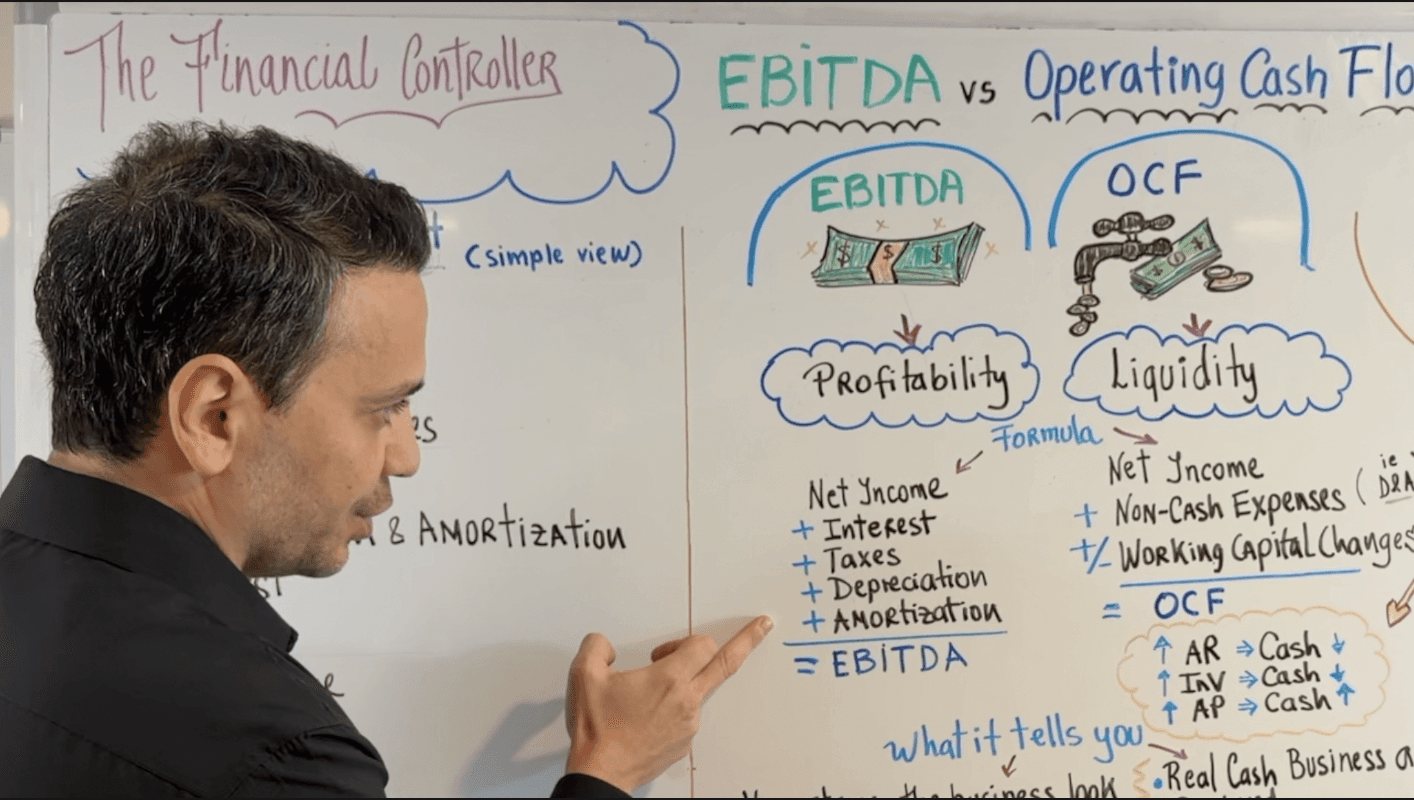 The Financial Controller
(simple view)
& Amortization
EBITDA vs Operating Cash Flo
EBITDA
OCF
Profitability
Liquidity
Formula
Net Income
+ Interest
+ Taxes
+ Depreciation
+ Amortization
= EBITDA
Net Income
+ Non-Cash Expenses (ie D&A
+/- Working Capital Changes
= OCF
↑ AR ⇒ Cash ↓
↑ INV ⇒ Cash ↓
↑ AP ⇒ Cash ↑
What it tells you
the business look
• Real Cash Business